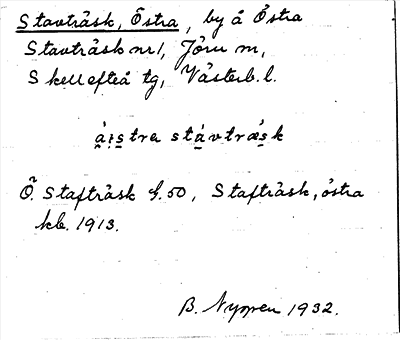 Stavträsk, Östra, by å Östra
Stavträsk nr 1, Jörn sn,
Skellefteå tg, Västerb. l.
ạ́i̯s̲tre stạ́vtrǽs̲k
Ö. Stafträsk G. 50, Stafträsk, östra
kb. 1913.
B. Nygren 1932.